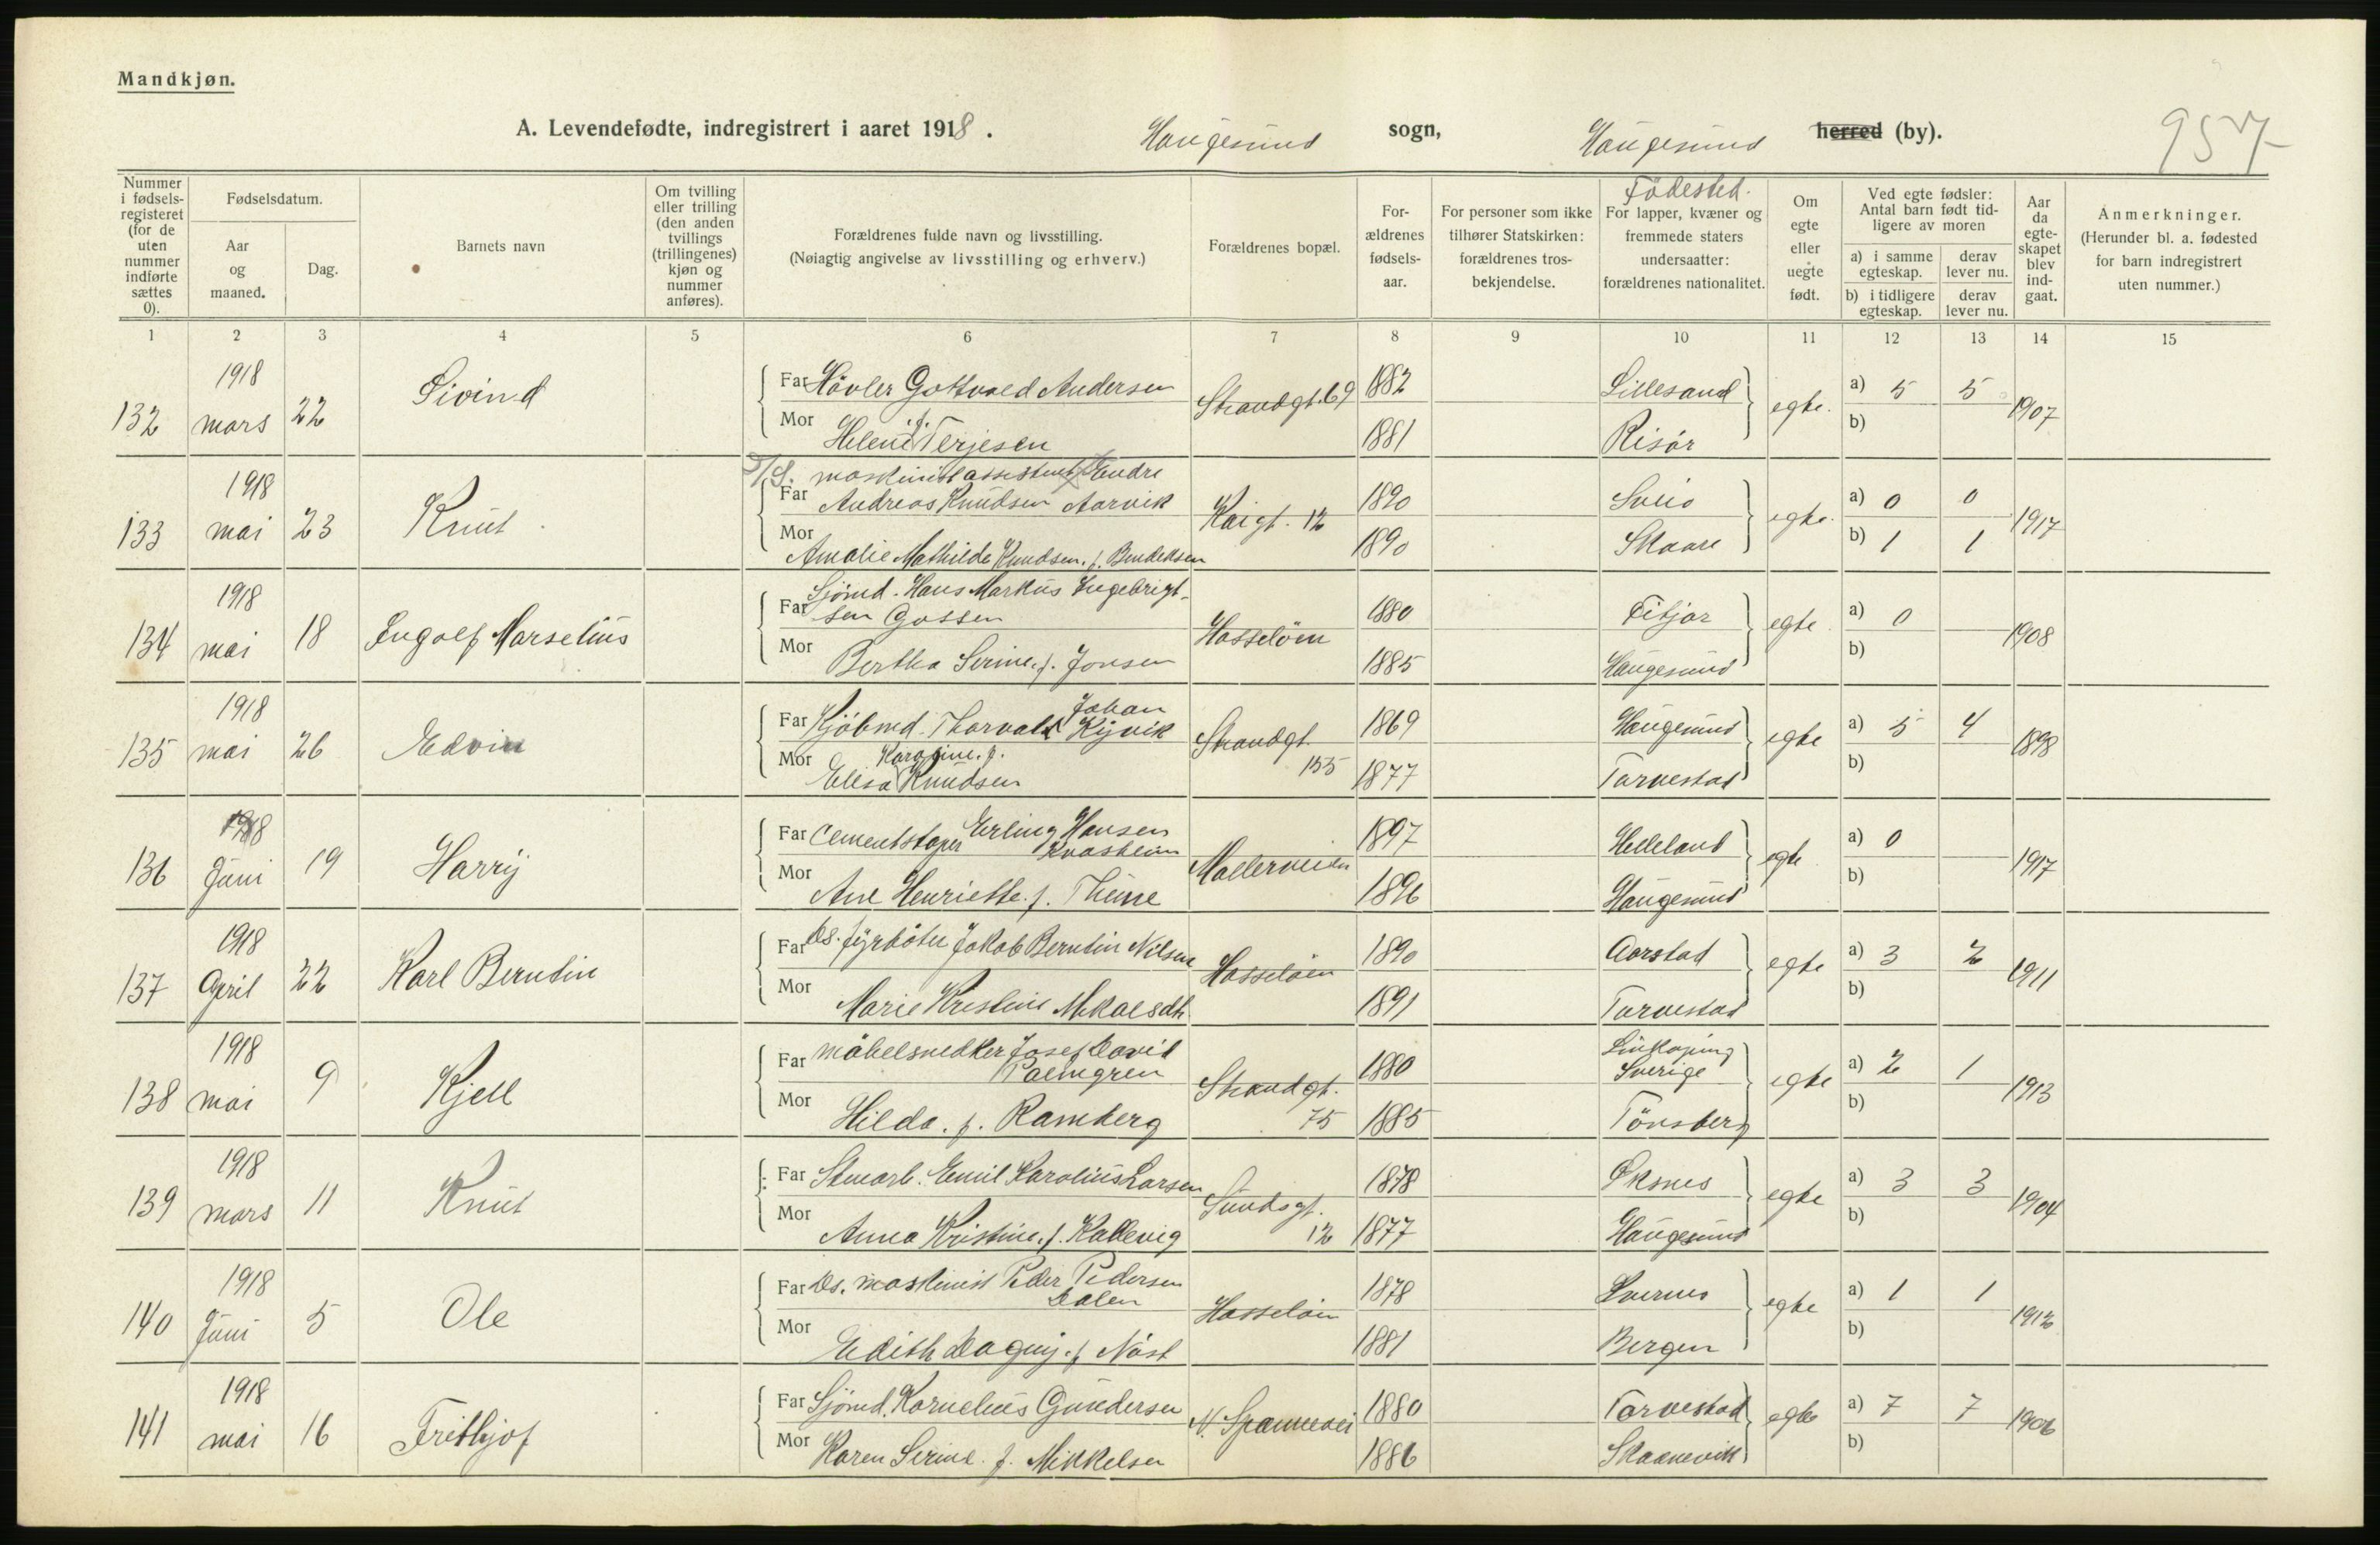 Mandkjøn.
A. Levendefødte, indregistrert i aaret 1918.
Haugesund sogn, Haugesund herred (by).
957
Nummer i fødselsregisteret (for de uten nummer indførte sættes 0).
Fødselsdatum.
Aar og maaned.
Dag.
Barnets navn
Om tvilling eller trilling (den anden tvillings (trillingenes) kjøn og nummer anføres).
Forældrenes fulde navn og livsstilling.
(Nøiagtig angivelse av livsstilling og erhverv.)
Forældrenes bopæl.
Forældrenes fødselsaar.
For personer som ikke tilhører Statskirken: forældrenes trosbekjendelse.
Fødested.
For lapper, kvæner og fremmede staters undersaatter: forældrenes nationalitet.
Om egte eller uegte født.
Ved egte fødsler: Antal barn født tidligere av moren
a) i samme egteskap.
derav lever nu.
b) i tidligere egteskap.
derav lever nu.
Aar da egteskapet blev indgaat.
Anmerkninger.
(Herunder bl. a. fødested for barn indregistrert uten nummer.)
1 2 3 4 5 6 7 8 9 10 11 12 13 14 15
132 1918 mars 22 Eivind
Far Høvler Gottvald Andersen Strandgt. 69 1882 Lillesand egte. a) 5 5 1907
Mor Helene f. Terjesen 1881 Risør b)
133 1918 mai 23 Knut
D/S. maskinistassistent Endre
Far Andreas Knudsen Aarvik Kaigt. 12 1890 Sveio egte. a) 0 0 1917
Mor Amalie Mathilde Knudsen. f. Bendiksen 1890 Skaare b) 1 1
134 1918 mai 18 Ingolf Marselius
Far Sjømd. Hans Markus Engebrigtsen Gossen Hasseløen 1880 Fitjar egte a) 0 1908
Mor Bertha Serine. f. Jonsen 1885 Haugesund b)
135 1918 mai 26 Edvin
Far Kjøbmd. Thorvald Johan Kyvik Strandgt. 155 1869 Haugesund egte a) 5 4 1898
Mor Elisa Karoline. f. Knudsen 1877 Torvestad b)
136 1918 Juni 19 Harry
Far Cementstøper Erling Hansen Kvasheim Møllerveien 1897 Helleland egte a) 0 1917
Mor Ane Henriette. f. Thime 1896 Haugesund b)
137 1918 April 22 Karl Berntin
Far Ds. fyrbøter Jakob Berntin Nilsen Hasseløen 1890 Aarstad egte a) 3 2 1911
Mor Marie Kristine Mikalsdtr. 1891 Torvestad b)
138 1918 mai 9 Kjell
Far møbelsnedker Josef David Palmgren Strandgt. 75 1880 Linkøping Sverige egte a) 2 1 1913
Mor Hilda. f. Ramberg 1885 Tønsberg b)
139 1918 mars 11 Knut
Far Stuearb. Emil Karolius Larsen Sundsgt. 12 1878 Øksnes egte a) 3 3 1904
Mor Anna Kristine. f. Kallevig 1877 Haugesund b)
140 1918 Juni 5 Ole
Far Ds. maskinist Peder Pedersen Dalen Hasseløen 1878 egte a) 1 1 1912
Mor Edith Dagny. f. Nøst 1881 Bergen b)
141 1918 mai 16 Frithjof
Far Sjømd. Kornelius Gundersen N. Spannevei 1880 Torvestad egte a) 7 7 1906
Mor Karen Serine. f. Mikkelsen 1886 Skaanevik b)